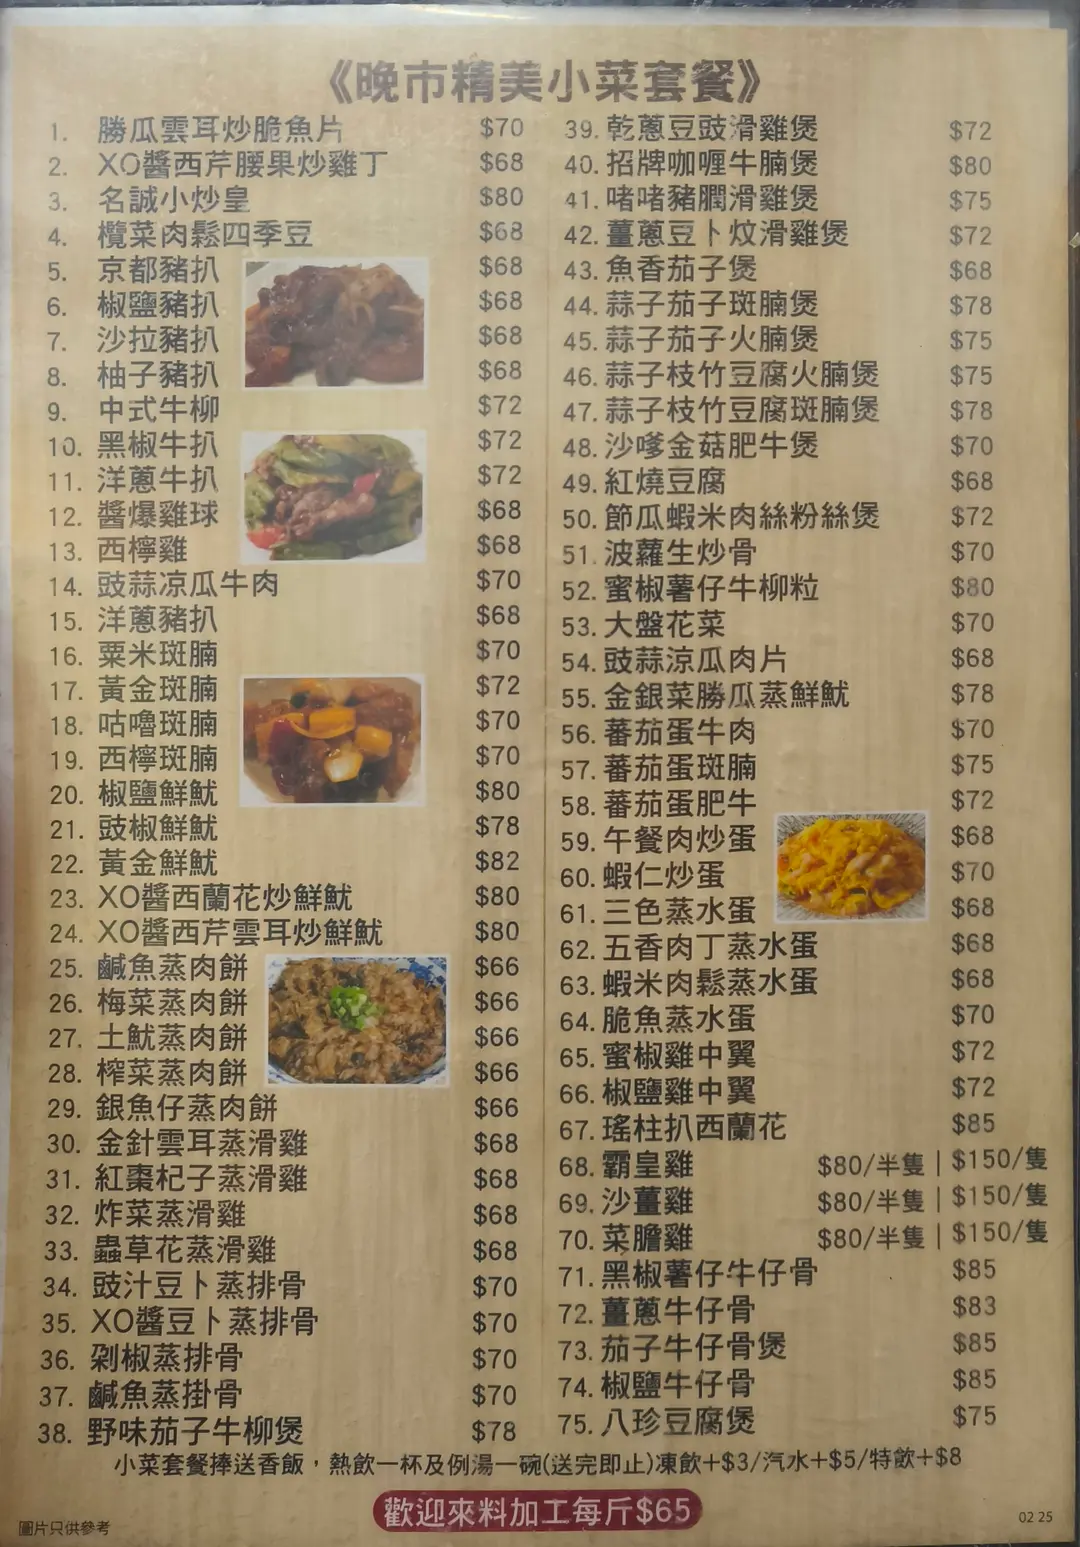 《晚市精美小菜套餐》
1. 勝瓜雲耳炒脆魚片 $70
2. XO醬西芹腰果炒雞丁 $68
3. 名誠小炒皇 $80
4. 欖菜肉鬆四季豆 $68
5. 京都豬扒 $68
6. 椒鹽豬扒 $68
7. 沙拉豬扒 $68
8. 柚子豬扒 $68
9. 中式牛柳 $72
10. 黑椒牛扒 $72
11. 洋蔥牛扒 $72
12. 醬爆雞球 $68
13. 西檸雞 $68
14. 豉蒜凉瓜牛肉 $70
15. 洋蔥豬扒 $68
16. 粟米斑腩 $70
17. 黃金斑腩 $72
18. 咕嚕斑腩 $70
19. 西檸斑腩 $70
20. 椒鹽鮮魷 $80
21. 豉椒鮮魷 $78
22. 黃金鮮魷 $82
23. XO醬西蘭花炒鮮魷 $80
24. XO醬西芹雲耳炒鮮魷 $80
25. 鹹魚蒸肉餅 $66
26. 梅菜蒸肉餅 $66
27. 土魷蒸肉餅 $66
28. 榨菜蒸肉餅 $66
29. 銀魚仔蒸肉餅 $66
30. 金針雲耳蒸滑雞 $68
31. 紅棗杞子蒸滑雞 $68
32. 炸菜蒸滑雞 $68
33. 蟲草花蒸滑雞 $68
34. 豉汁豆卜蒸排骨 $70
35. XO醬豆卜蒸排骨 $70
36. 剁椒蒸排骨 $70
37. 鹹魚蒸掛骨 $70
38. 野味茄子牛柳煲 $78
39. 乾蔥豆豉滑雞煲 $72
40. 招牌咖喱牛腩煲 $80
41. 啫啫豬膶滑雞煲 $75
42. 薑蔥豆卜炆滑雞煲 $72
43. 魚香茄子煲 $68
44. 蒜子茄子斑腩煲 $78
45. 蒜子茄子火腩煲 $75
46. 蒜子枝竹豆腐火腩煲 $75
47. 蒜子枝竹豆腐斑腩煲 $78
48. 沙嗲金菇肥牛煲 $70
49. 紅燒豆腐 $68
50. 節瓜蝦米肉絲粉絲煲 $72
51. 波蘿生炒骨 $70
52. 蜜椒薯仔牛柳粒 $80
53. 大盤花菜 $70
54. 豉蒜涼瓜肉片 $68
55. 金銀菜勝瓜蒸鮮魷 $78
56. 蕃茄蛋牛肉 $70
57. 蕃茄蛋斑腩 $75
58. 蕃茄蛋肥牛 $72
59. 午餐肉炒蛋 $68
60. 蝦仁炒蛋 $70
61. 三色蒸水蛋 $68
62. 五香肉丁蒸水蛋 $68
63. 蝦米肉鬆蒸水蛋 $68
64. 脆魚蒸水蛋 $70
65. 蜜椒雞中翼 $72
66. 椒鹽雞中翼 $72
67. 瑤柱扒西蘭花 $85
68. 霸皇雞 $80/半隻 | $150/隻
69. 沙薑雞 $80/半隻 | $150/隻
70. 菜膽雞 $80/半隻 | $150/隻
71. 黑椒薯仔牛仔骨 $85
72. 薑蔥牛仔骨 $83
73. 茄子牛仔骨煲 $85
74. 椒鹽牛仔骨 $85
75. 八珍豆腐煲 $75
小菜套餐捧送香飯，熱飲一杯及例湯一碗(送完即止)凍飲+$3/汽水+$5/特飲+$8
歡迎來料加工每斤$65
圖片只供參考
02 25